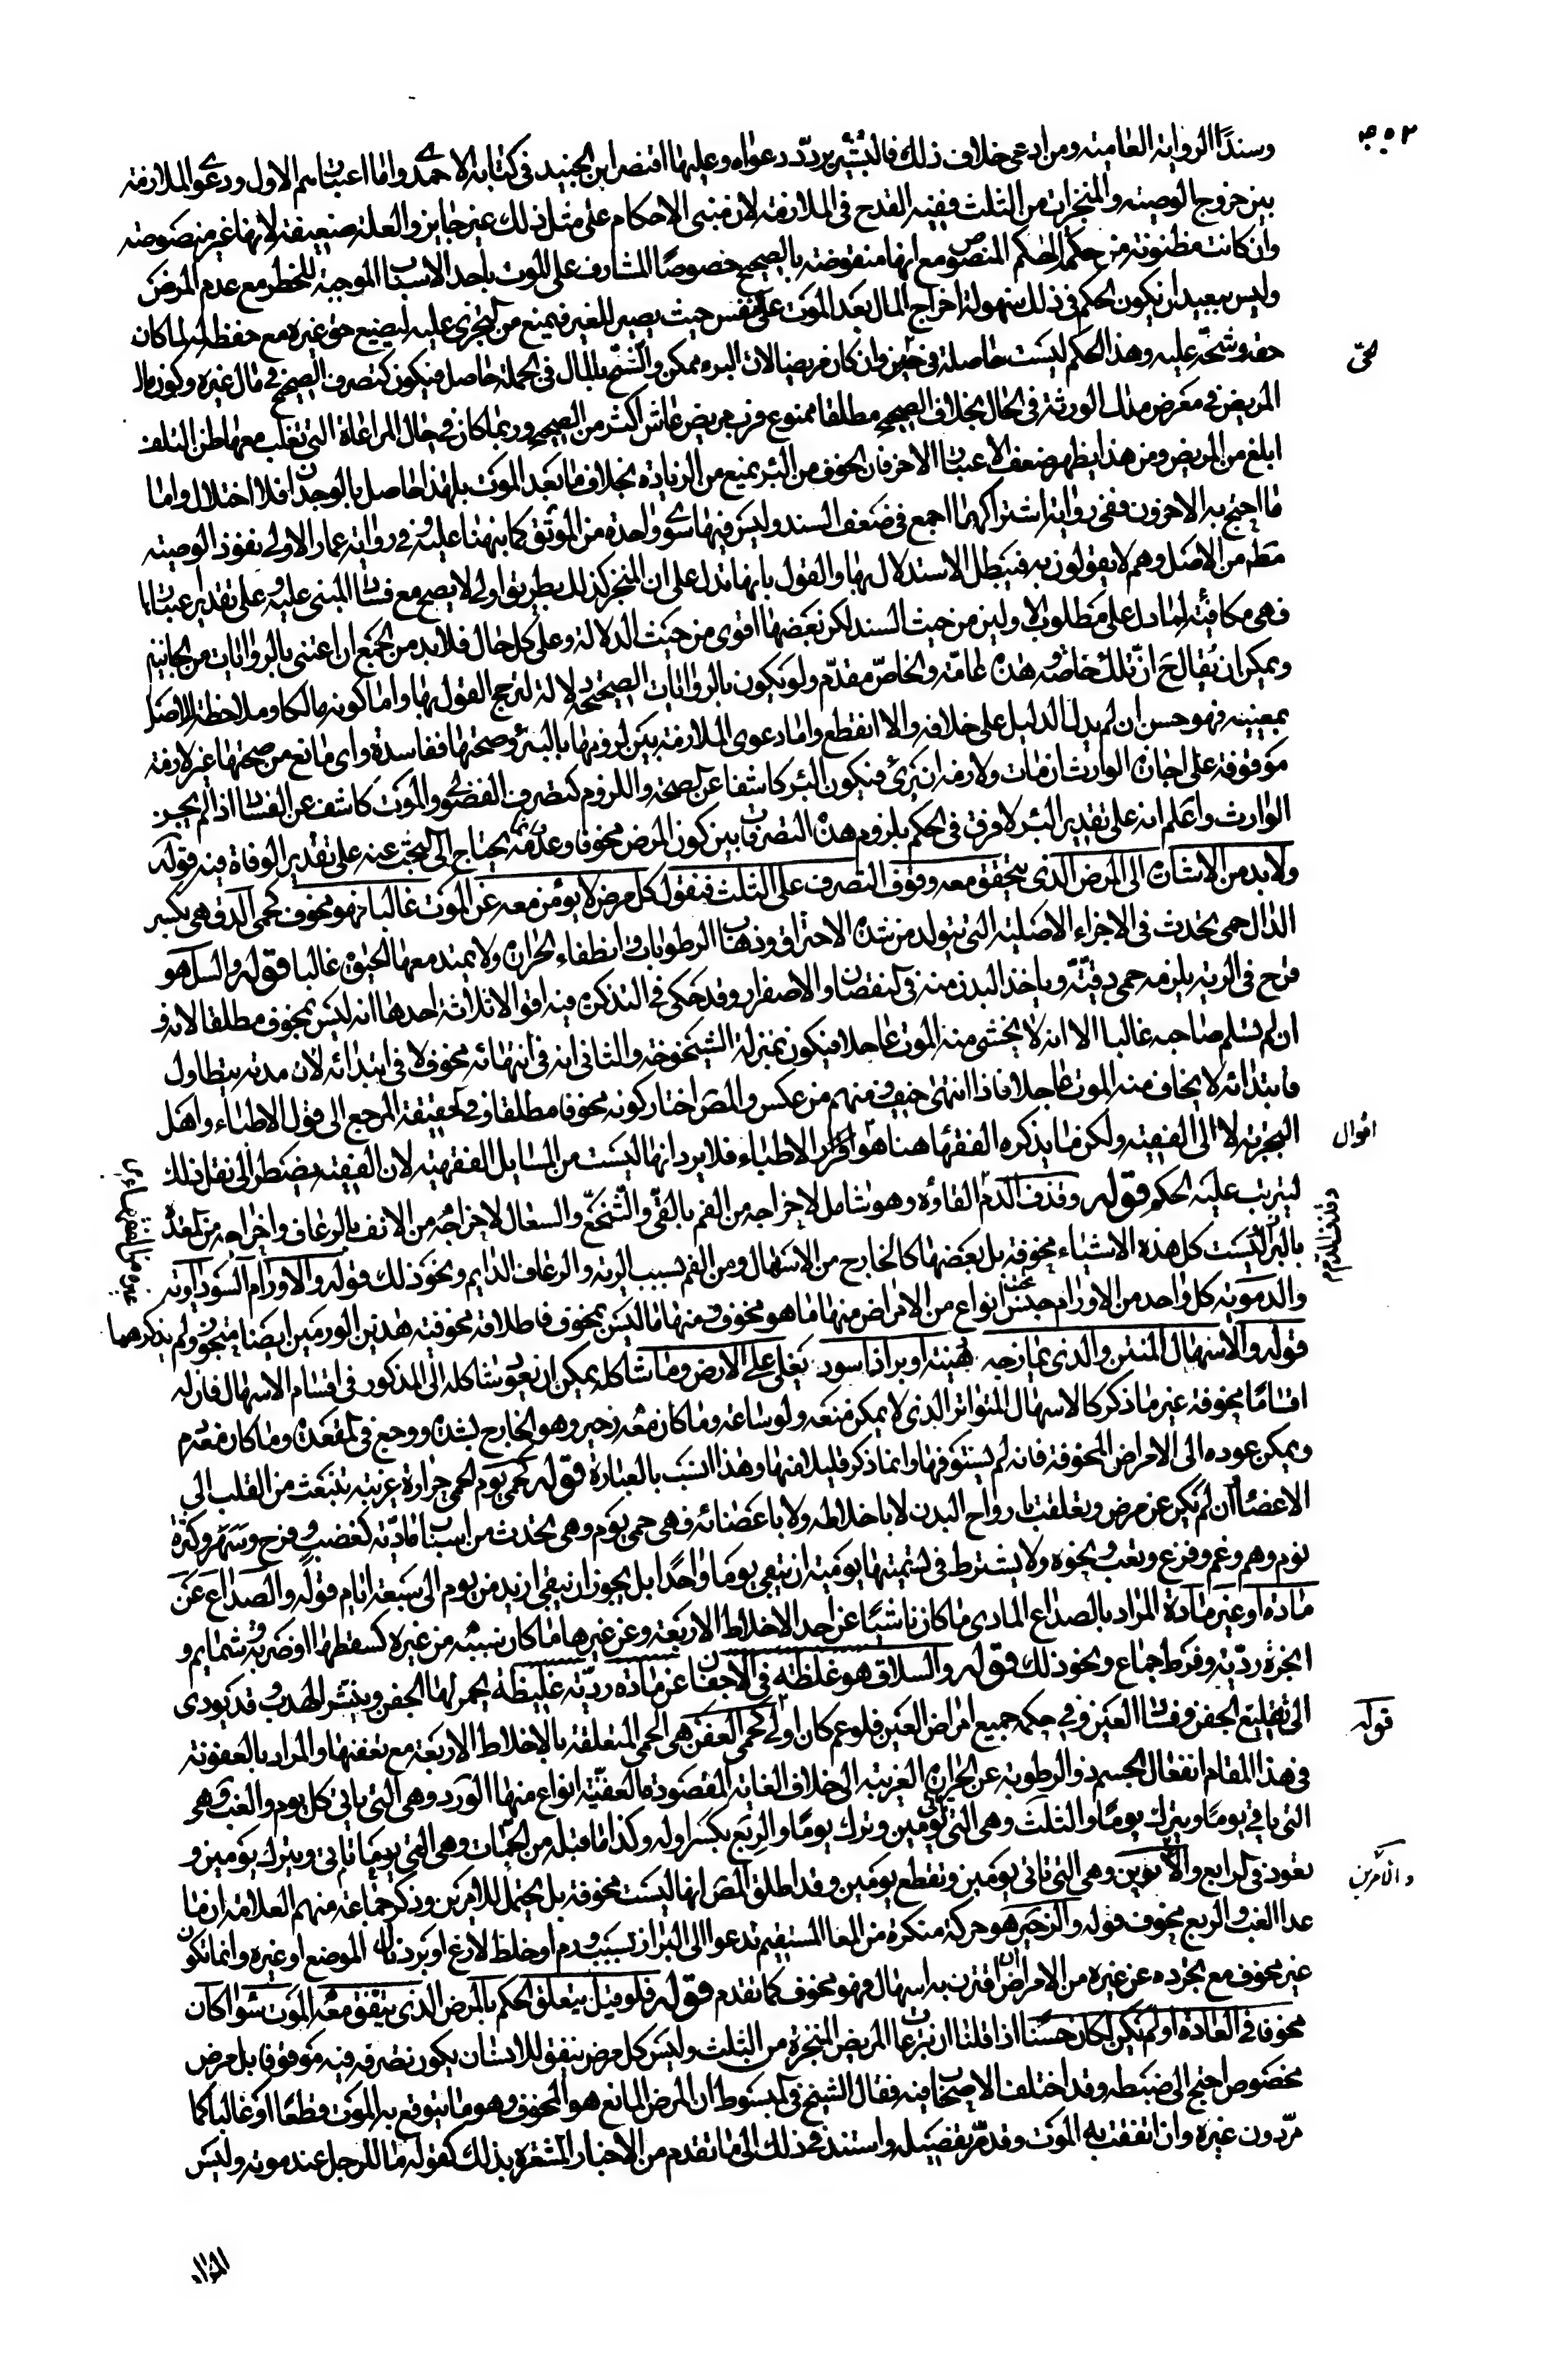 وسندا الرواية العامية ومن ادعى خلاف ذلك فالتتبع يرد دعواه وعليها اقتصر ابن الجنيد في كتابه الاحمدي واما اعتبارهم الاول ودعوى الملازمة
بين خروج الوصية والمنجزات من الثلث ففيه القدح في الملازمة لان مبنى الاحكام على مثل ذلك غير جايز والعلة ضعيفة لانها غير منصوصة
وان كانت مظنونة من حكمة الحكم المنصوص مع انها منقوضة بالصحيح خصوصا المشارف على الموت باحد الاسباب الموجبة للخطر مع عدم المرض
وليس ببعيد ان يكون الحكم في ذلك سهولة اخراج المال بعد الموت على النفس حيث يصير للغير فيمنع من التجري عليه ليضيع حق غيره مع حفظه له لما كان
حقه وشحه عليه وهذا الحكم ليست حاصلة في الحي وان كان مريضا لان البرء ممكن والشح بالمال في الجملة حاصل فيكون كتصرف الصحيح في مال غيره وكون مال
المريض في معرض ملك الورثة في الحال بخلاف الصحيح مطلقا ممنوع فرب مريض عاش اكثر من الصحيح وربما كان في حال المراماة التي تغلب معها ظن التلف
ابلغ من المريض ومن هذا يظهر ضعف الاعتبار الاخر فان الخوف من البرء يمنع من الزيادة بخلاف ما بعد الموت بل هذا حاصل بالوجدان فلا اختلال واما
ما احتج به الاخرون ففي رواية اشتراكهما اجمع في ضعف السند وليس فيها سوى واحدة من الموثق كما نبهنا عليه وفي رواية عمار الاولى نفوذ الوصية
مطلقا من الاصل وهم لا يقولون به فيبطل الاستدلال بها والقول بانها تدل على ان المنجز كذلك بطريق اولى لا يصح مع فساد المبنى عليه وعلى تقدير اعتبارها
فهي مكافئة لما دل على مطلوب الاولين من حيث السند لكن بعضها اقوى من حيث الدلالة وعلى كل حال فلا بد من الجمع ان اعتني بالروايات من الجانبين
ويمكن ان يقال ح ان تلك خاصة وهذه عامة والخاص مقدم ولو يكون بالروايات الصحيحة دلالة لترجح القول بها واما كونه مالكا وملاحظة الاصل
بمعنييه فهو حسن ان لم يدل الدليل على خلافه والا انقطع واما دعوى الملازمة بين لزومها بالبرء وصحتها ففاسدة واي مانع من صحتها غير لازمة
موقوفة على اجازة الوارث ان مات ولازمة ان برئ فيكون البرء كاشفا عن الصحة واللزوم كتصرف الفضولي والموت كاشف عن الفساد اذا لم يجز
الوارث واعلم انه على تقدير البرء لا فرق في الحكم بلزوم هذه التصرفات بين كون المرض مخوفا وعدمه وانما يحتاج الى البحث عنه على تقدير الوفاة فيه قوله
ولا بد من الاشارة الى المرض الذي يتحقق معه وقوف التصرف على الثلث فنقول كل مرض لا يؤمن معه عن الموت غالبا فهو مخوف كحمى الدق هي بكسر
الدال حمى تحدث في الاجزاء الاصلية التي يتولد من شدة الاحتراق وذهاب الرطوبات وانطفاء الحرارة ولا يمتد معها الحيوة غالبا قوله والسل هو
قرح في الرية يلزمه حمى دقية وياخذ البدن منه في النقصان والاصفرار وقد حكى في التذكرة فيه اقوالا ثلاثة احدها انه ليس بمخوف مطلقا لانه و
ان لم يسلم صاحبه غالبا الا انه لا يخشى منه الموت عاجلا فيكون بمنزلة الشيخوخة والثاني انه في انتهائه مخوف لا في ابتدائه لان مدته يتطاول
فابتدائه لا يخاف منه الموت عاجلا فاذا انتهى خيف ومنهم من عكس والمص اختار كونه مخوفا مطلقا وفي الحقيقة المرجع الى قول الاطباء واهل
التجربة لا الى الفقيه ولكن ما يذكره الفقهاء هنا هو اقوال الاطباء فلا يرد انها ليست من المسايل الفقهية لان الفقيه يضطر الى نقل ذلك
ليترتب عليه الحكم قوله وقذف الدم القاؤه وهو شامل لاخراجه من الفم بالقي والتنخع والسعال لاخراجه من الانف بالرعاف واخراجه من المعدة
بالبراز ليست كل هذه الاشياء مخوفة بل بعضها كالخارج من الاسهال ومن الفم بسبب الرية والرعاف الدايم ونحو ذلك قوله والاورام السوداوية
والدموية كل واحد من الاورام جنس تحته انواع من الامراض منها ما هو مخوف ومنها ما ليس بمخوف فاطلاقه مخوفية هذين الورمين ايضا متجوز ولم يذكرهما
قوله والاسهال المنتن والذي يمازجه دهنية او براز اسود يغلي على الارض وما شاكله يمكن ان يعود شاكله الى المذكور في اقسام الاسهال فان له
اقساما مخوفة غير ما ذكر كالاسهال المتواتر الذي لا يمكن منعه ولو ساعة وما كان معه زحير وهو الخارج بشدة ووجع في المقعدة وما كان معه دم
ويمكن عوده الى الامراض المخوفة فانه لم يستوفها وانما ذكر قليلا منها وهذا انسب بالعبارة قوله كحمى يوم الحمى حرارة غريبة تنبعث من القلب الى
الاعضاء ان لم تكن عن مرض وتعلقت بارواح البدن لا باخلاطه ولا باعضائه فهي حمى يوم وهي تحدث من اسباب مادية كغضب وفرح وسهر وكثرة
نوم وهم وغم وفزع وتعب ونحوه ولا يشترط في تسميتها يومية ان تبقى يوما واحدا بل يجوز ان تبقى ازيد من يوم الى سبعة ايام قوله والصداع عن
مادة او غير مادة المراد بالصداع المادي ما كان ناشيا عن احد الاخلاط الاربعة وعن غيرها ما كان سببه من غيره كسقطة او ضربة وشمايم و
ابخرة ردية وفرط جماع ونحو ذلك قوله والسلاق هو غلظة في الاجفان عن مادة ردية غليظة يحمر لها الجفن وينتثر الهدب وقد يودي
الى تقليع الجفن وفساد العين وفي حكمه جميع امراض العين فلو عم كان اولى قوله كحمى العفن هي الحمى المتعلقة بالاخلاط الاربعة مع تعفنها والمراد بالعفونة
في هذا المقام انفعال الجسم ذو الرطوبة عن الحرارة الغريبة الى خلاف الغاية المقصودة والعفنية انواع منها الورد وهي التي ياتي كل يوم والغب وهي
التي ياتي يوما ويترك يوما والثلث وهي التي تاتي يومين وترك يوما والربع بكسر اوله وكذا ما قبله من الحميات وهي التي يوما تاتي ويترك يومين و
تعود في الرابع والاخوين وهي التي تاتي يومين وتقطع يومين وقد اطلق المص انها ليست مخوفة بل يحتمل للامرين وذكر جماعة منهم العلامة ان ما
عدا الغب والربع مخوف قوله والزحير هو حركة منكرة من المعا المستقيم تدعوا الى البراز تسبب ورم او خلط لاذع او برد نال الموضع او غيره وانما تكون
غير مخوف مع تجرده عن غيره من الامراض فان اقترن به اسهال فهو مخوف كما تقدم قوله فلو قيل يتعلق الحكم بالمرض الذي يتفق معه الموت سواء كان
مخوفا في العادة او لم يكن لكان حسنا اذا قلنا ان تبرعات المريض المنجزة من الثلث وليس كل مرض يتفق للانسان يكون تصرفه فيه موقوفا بل مرض
مخصوص احتج الى ضبطه وقد اختلف الاصحاب فيه فقال الشيخ في المبسوط ان المرض المانع هو المخوف وهو ما يتوقع به الموت قطعا او غالبا كما
مر دون غيره وان اتفقت به الموت وقد مر تفصيله واستند في ذلك الى ما تقدم من الاخبار المشعرة بذلك كقوله ما للرجل عند موته وليس